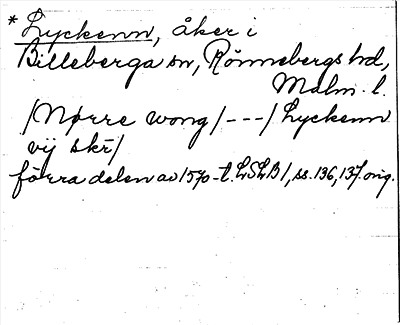 * Lyckenn, åker i
Billeberga sn, Rönnebergs hd,
Malm. l.
/Nørre wong/---/Lyckenn
vij skr̄/
förra delen av 1570-t. LSLB 1, ss. 136, 137. orig.